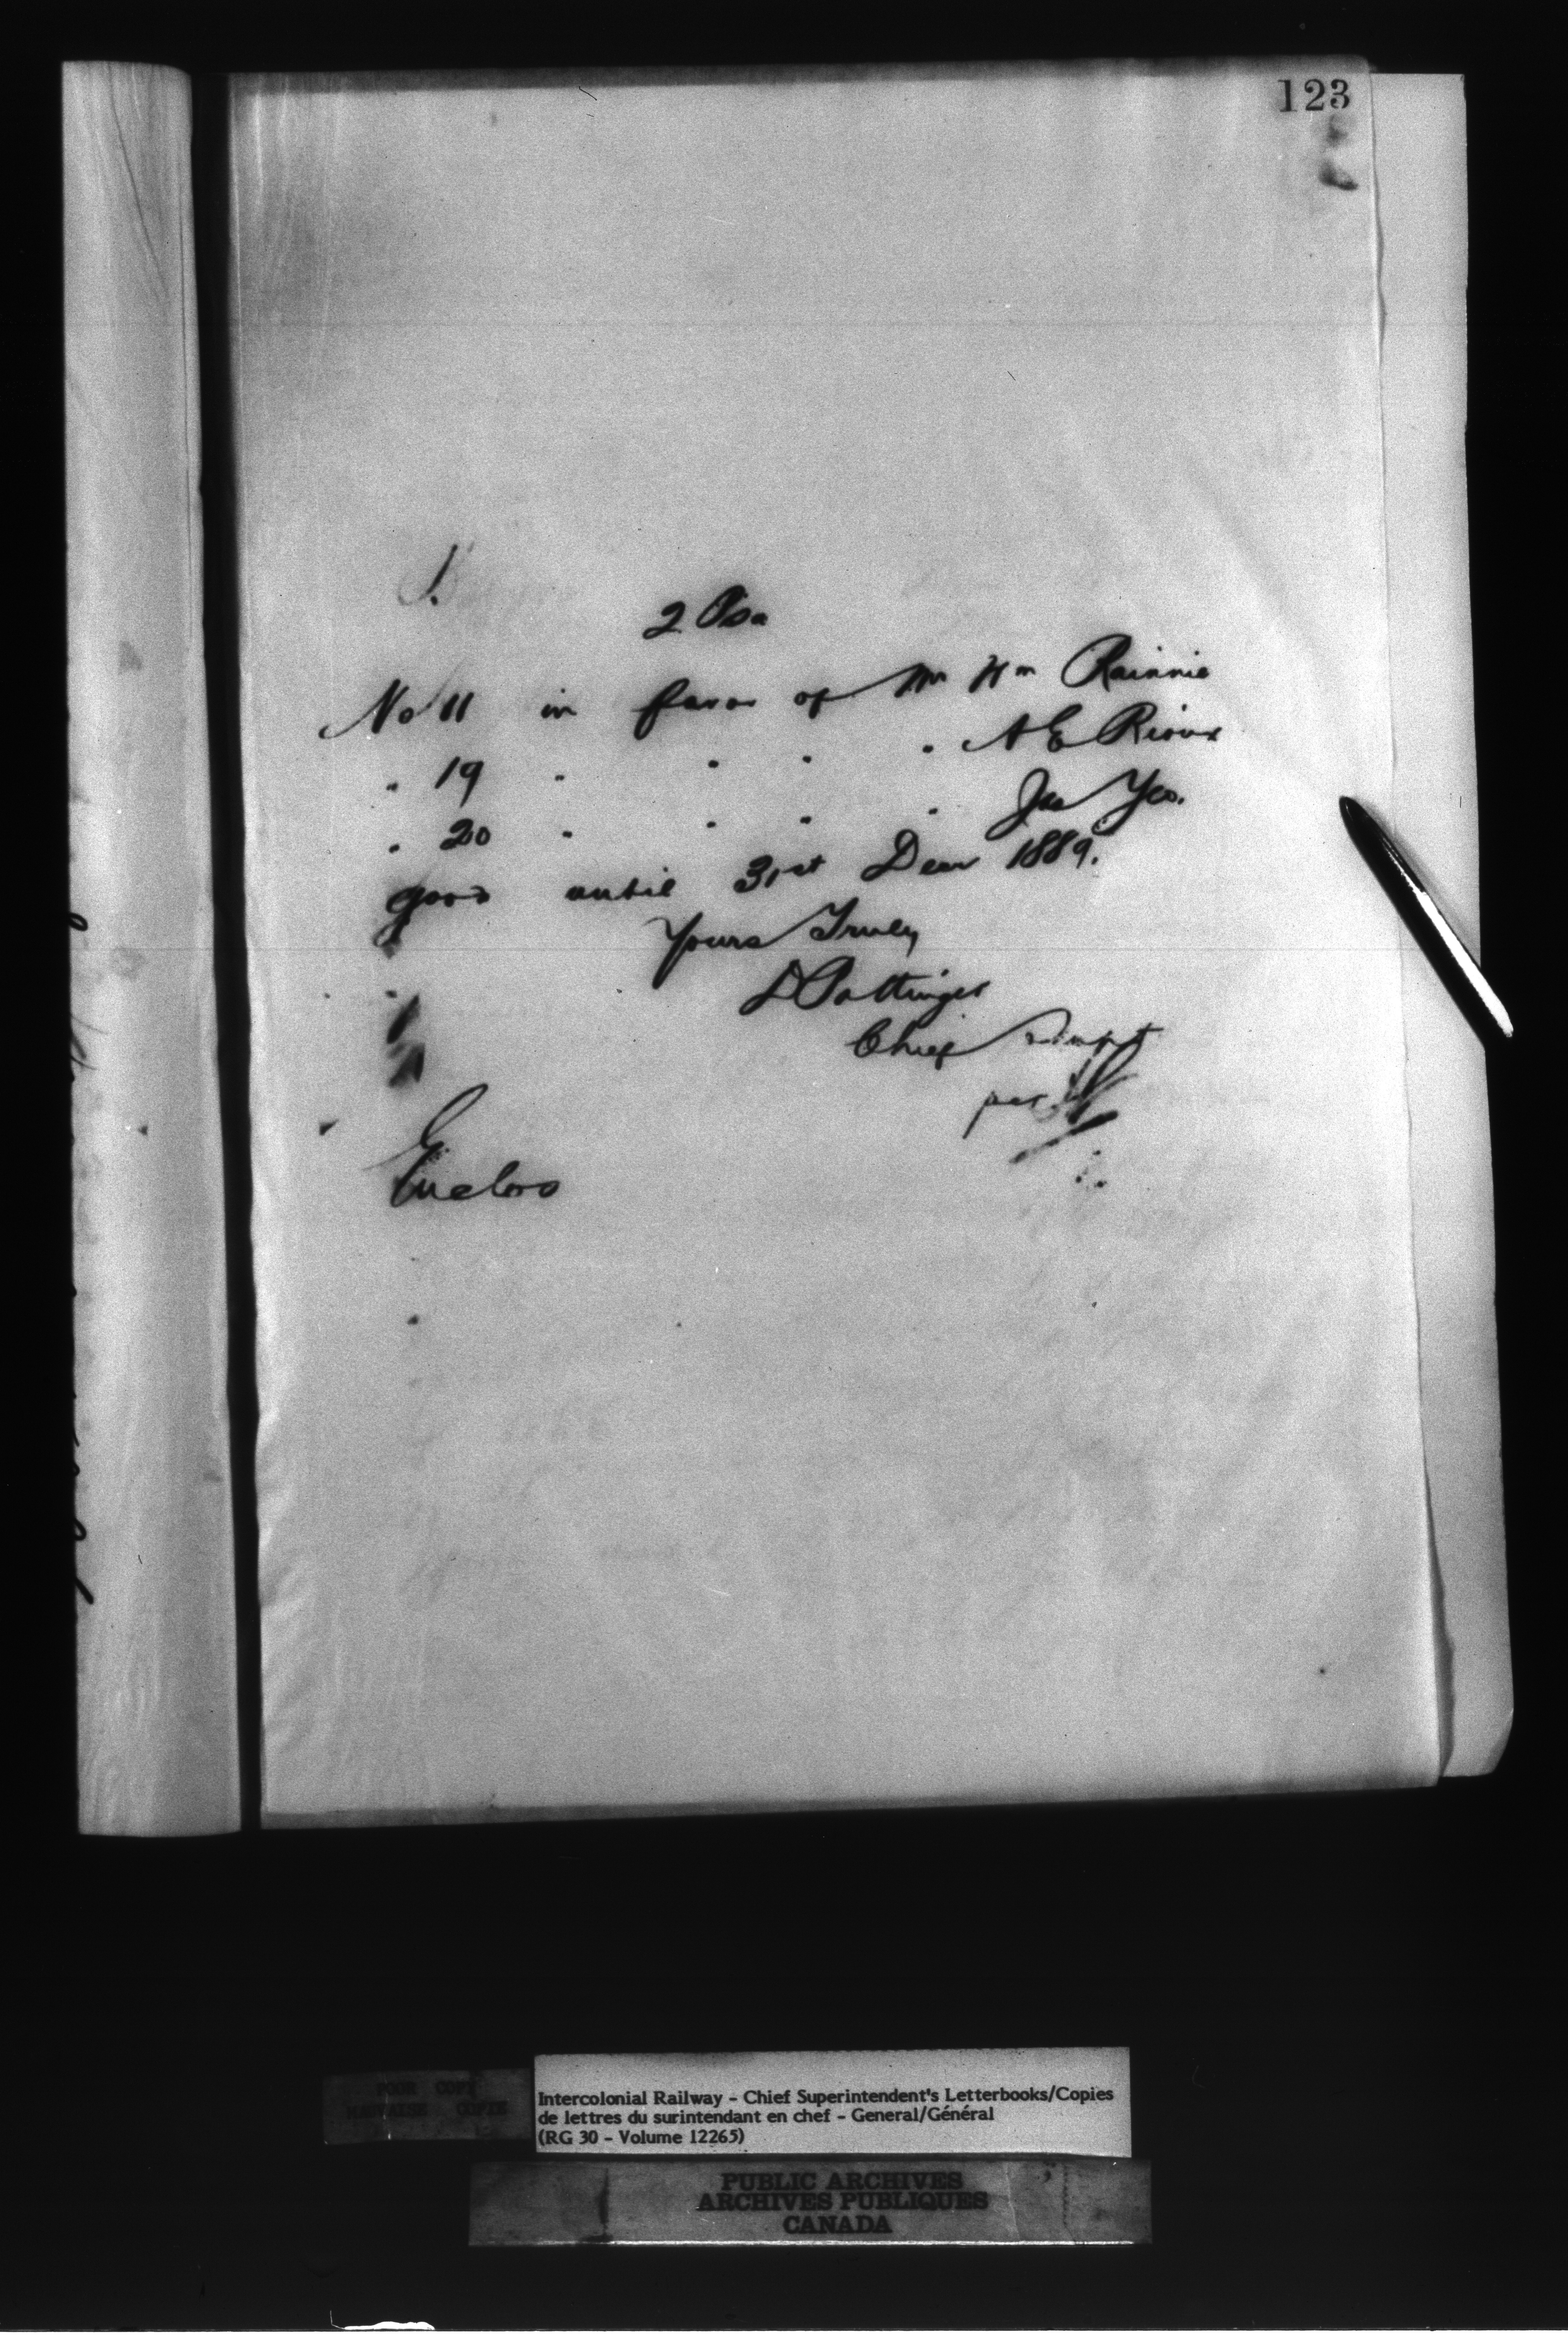 123
2
No 11 in favor of Mr Wm Rainnie
" 19 " " " " A E Rioux
" 20 " " " " Jas Yeo.
good until 31st Decr 1889.
Yours Truly
D Pottinger
Chief Supt
per
Enclos
POOR COPY
MAUVAISE COPIE
Intercolonial Railway - Chief Superintendent's Letterbooks/Copies
de lettres du surintendant en chef - General/Général
(RG 30 - Volume 12265)
PUBLIC ARCHIVES
ARCHIVES PUBLIQUES
CANADA